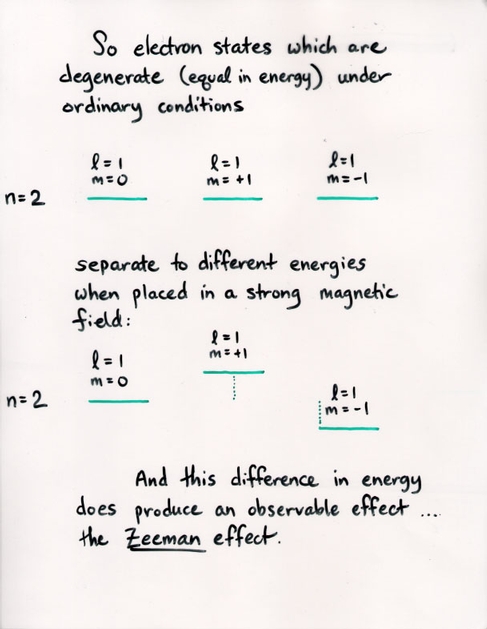 So electron states which are
degenerate (equal in energy) under
ordinary conditions
l=1 l=1 l=1
m=0 m=+1 m=-1
n=2
separate to different energies
when placed in a strong magnetic
field:
l=1
m=+1
l=1
m=0
n=2
l=1
m=-1
And this difference in energy
does produce an observable effect ...
the Zeeman effect.